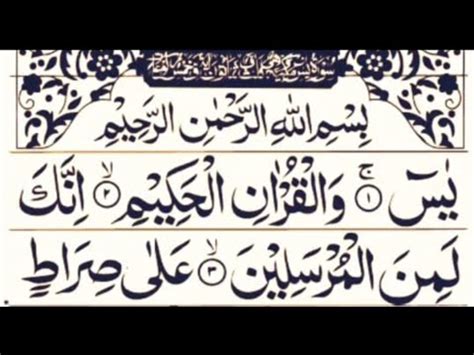 بِسْمِ اللهِ الرَّحْمٰنِ الرَّحِيْمِ
يٰسٓ ۚ ﴿۱﴾ وَالْقُرْاٰنِ الْحَكِيْمِ ۙ ﴿۲﴾ اِنَّكَ
لَمِنَ الْمُرْسَلِيْنَ ۙ ﴿۳﴾ عَلٰى صِرَاطٍ